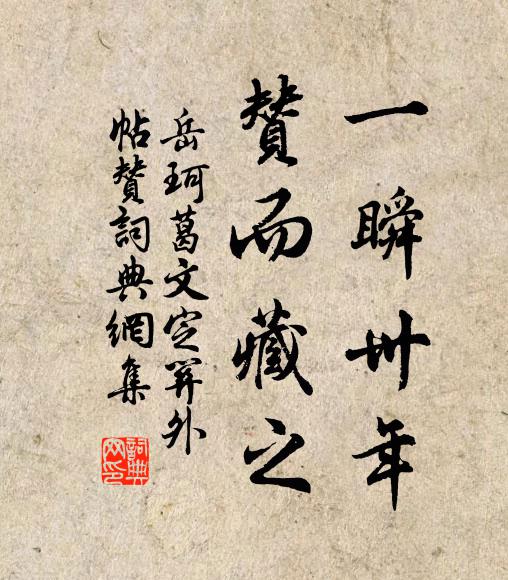 一瞬卅年
賛而藏之
岳珂葛文定外
帖賛詞典網集
詞典
网印